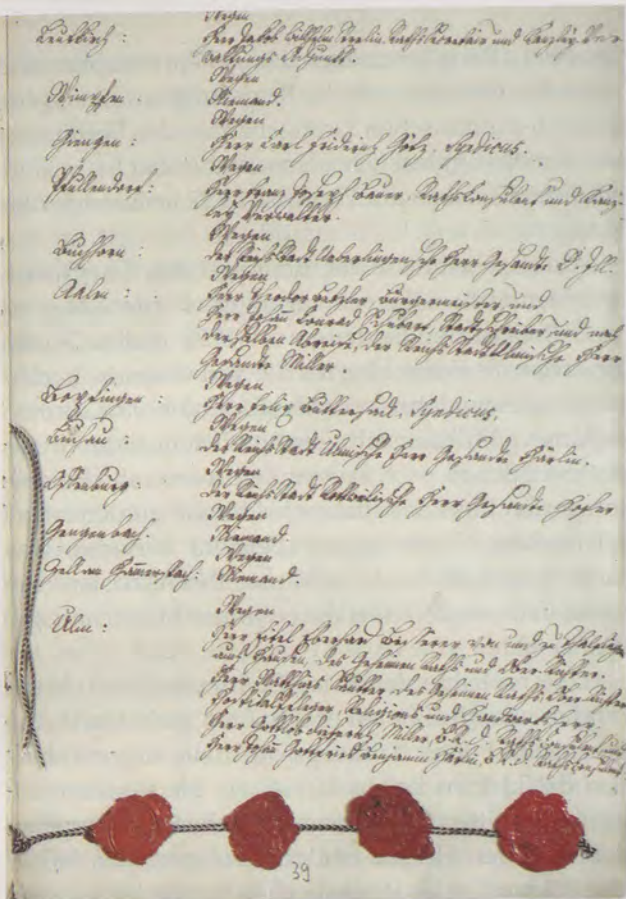 Wegen
Leutkirch : Herr Jakob Wilhelm Merlin, Raths Secretair und Kanzley Ver-
waltungs Adjunct.
Wegen
Wimpfen : Niemand.
Wegen
Giengen : Herr Carl Friderich Götz, Syndicus.
Wegen
Pfullendorf : Herr Franz Joseph Bauer, Raths Consulent und Kanz-
ley Verwalter.
Wegen
Buchhorn : der Reichs Stadt Ueberlingensche Herr Gesandte
Wegen
Aalen : Herr Theodor Betzler, Burgermeister, und
Herr Johann Conrad Schubart, Stadtschreiber, und nach
derselben Abreise, der Reichs Stadt Ulmische Herr
Gesandte Miller.
Wegen
Bopfingen : Herr Felix Buttersack, Syndicus.
Wegen
Buchau : der Reichs Stadt Ulmische Herr Gesandte Härlin.
Wegen
Offenburg : der Reichs Stadt Rottweilische Herr Gesandte Hofer
Wegen
Gengenbach. Niemand.
Wegen
Zell am Hamerspach : Niemand.
Wegen
Ulm : Herr Eitel Eberhard Besserer von und zu Thalfingen
und Hausen, des Geheimen Raths und Ober Richter.
Herr Matthäus Kautter, des Geheimen Raths, Ober Richter
Hospitalpfleger, Religions und Handwerks Herr.
Herr Gottlob Dieterich Miller, Raths Consulent und
Herr Johann Gottfried Benjamin Härlin, Raths Consulent
39